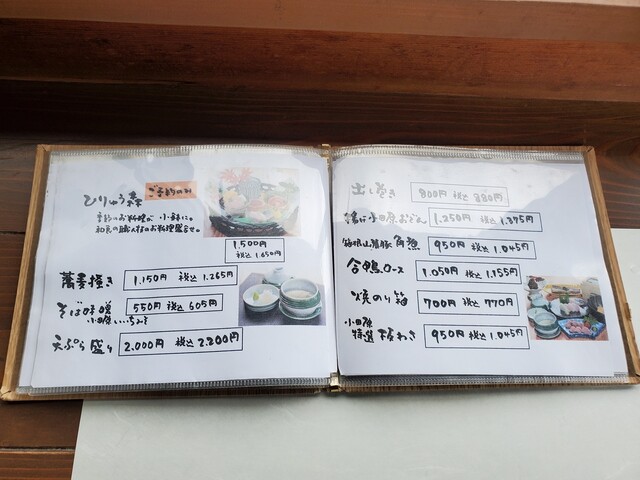 ひりゅう森 ご予約のみ
季節のお料理が 小鉢に。
和食の職人技のお料理屋台。
1,500円
税込 1.650円
蕎麦掻き 1.150円 税込 1.265円
そば味噌 550円 税込 605円
小田原いいちみそ
天ぷら盛り 2.000円 税込 2.200円
出し巻き 800円 税込 880円
小田原おでん 1.250円 税込 1.375円
箱根山麓豚 角煮 950円 税込 1.045円
合鴨ロース 1.050円 税込 1.155円
焼のり箱 700円 税込 770円
小田原
特選 板わさ 950円 税込 1.045円